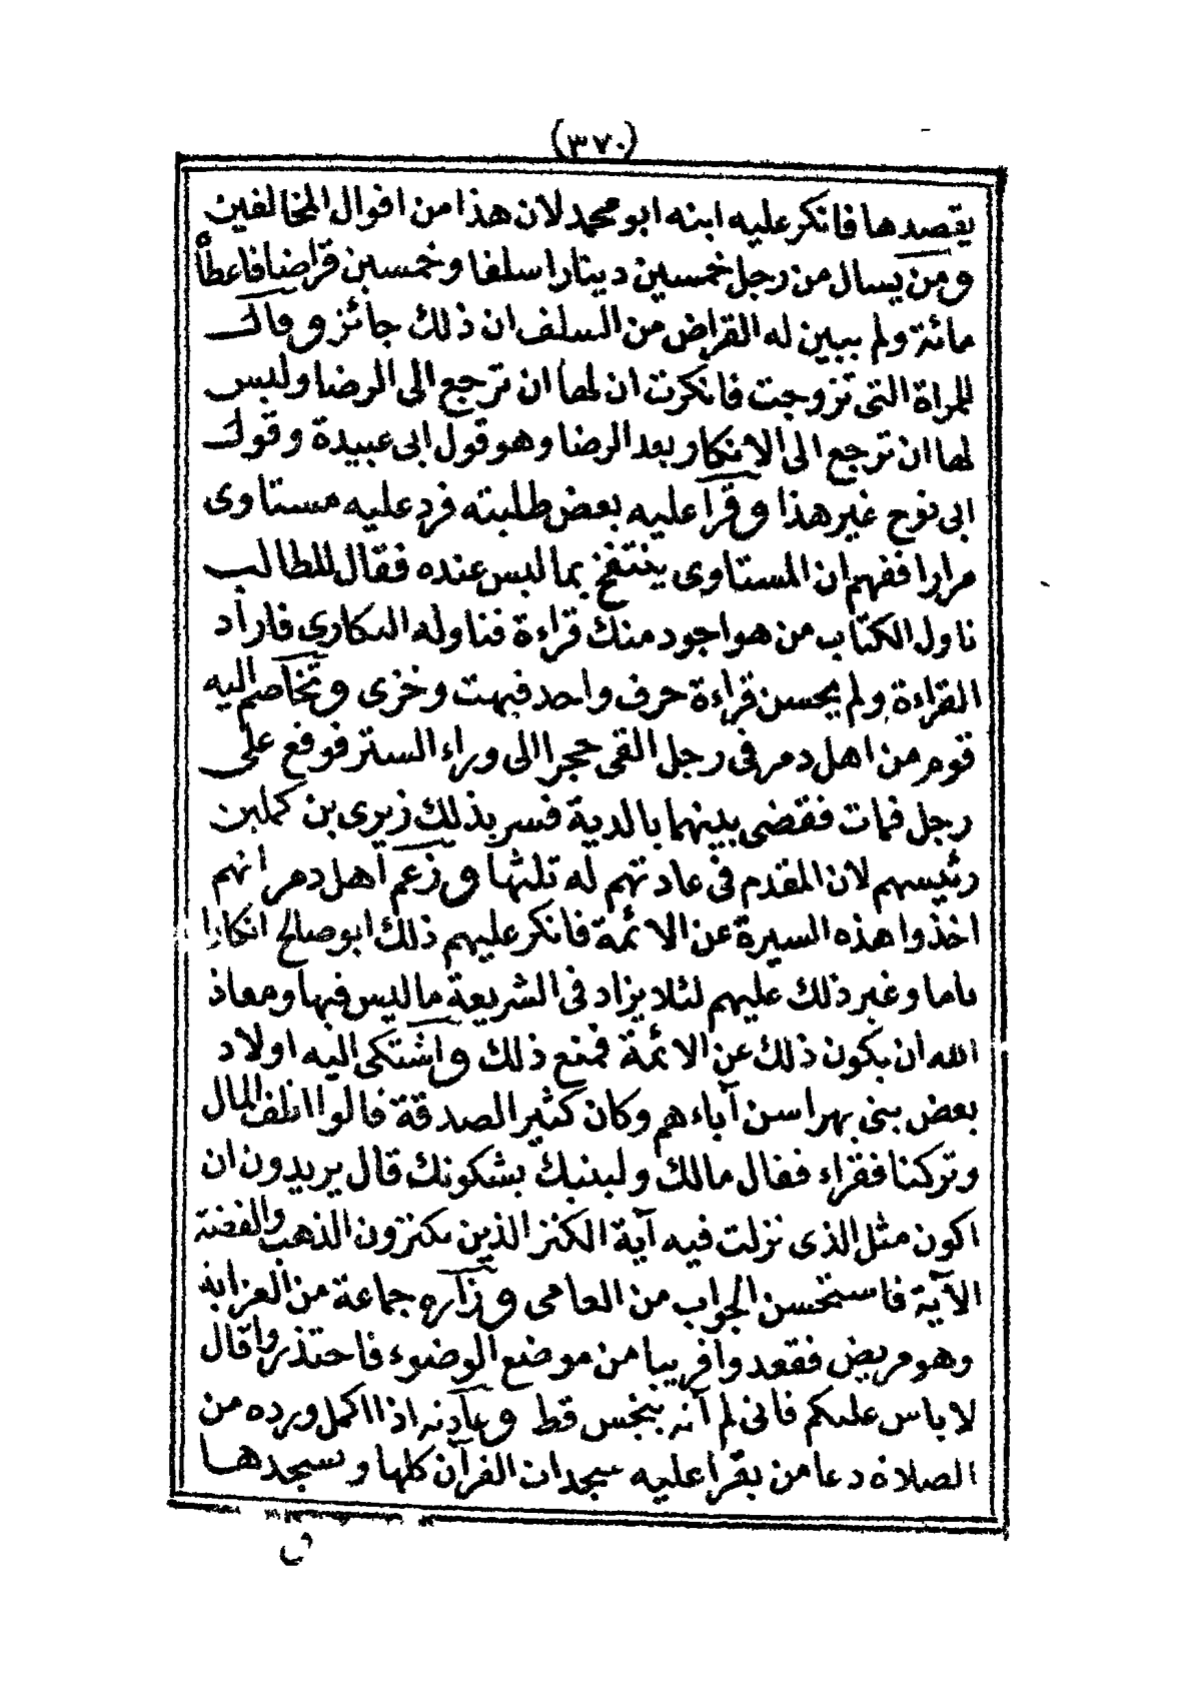 (٣٧٠)
يقصدها فانكر عليه ابنه ابو محمد لان هذا من اقوال المخالفين
ومن يسال من رجل خمسين دينارا سلفا وخمسين قراضا فاعطاه
مائة ولم يبين له القراض من السلف ان ذلك جائز وقال
للمراة التى تزوجت فانكرت ان لها ان ترجع الى الرضا وليس
لها ان ترجع الى الانكار بعد الرضا وهو قول ابى عبيدة وقول
ابى نوح غير هذا وقرا عليه بعض طلبته فرد عليه مستاوى
مرارا ففهم ان المستاوى ينتفخ بما ليس عنده فقال للطالب
ناول الكتاب من هو اجود منك قراءة فناوله البكارى فاراد
القراءة ولم يحسن قراءة حرف واحد فبهت وخزى وتخاصم اليه
قوم من اهل دمر فى رجل القى حجرا الى وراء الستر فوقع على
رجل فمات فقضى بينهما بالدية فسر بذلك زيرى بن كملين
رئيسهم لان المقدم فى عادتهم له ثلثها وزعم اهل دمر انهم
اخذوا هذه السيرة عن الائمة فانكر عليهم ذلك ابو صالح انكارا
تاما وغير ذلك عليهم لئلا يزاد فى الشريعة ما ليس فيها ومعاذ
الله ان يكون ذلك عن الائمة فمنع ذلك واشتكى اليه اولاد
بعض بنى يهراسن آباءهم وكان كثير الصدقة قالوا اتلف المال
وتركنا فقراء فقال مالك ولبنيك يشكونك قال يريدون ان
اكون مثل الذى نزلت فيه آية الكنز الذين يكنزون الذهب والفضة
الآية فاستحسن الجواب من العامى وزاره جماعة من العزابة
وهو مريض فقعدوا قريبا من موضع الوضوء فاحتذروا قال
لا باس عليكم فانى لم آته بنجس قط وعادته اذا اكمل ورده من
الصلاة دعا من يقرا عليه سجدات القرآن كلها ويسجدها